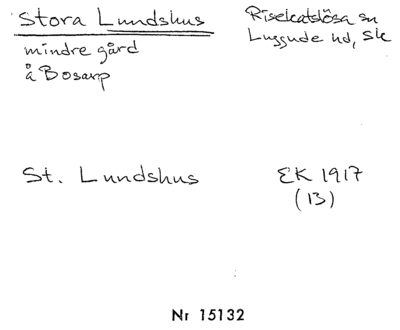 Stora Lundshus
Risekatslösa sn
Luggude hd, Sk
mindre gård
å Bosarp
St. Lundshus
EK 1917
(13)
Nr 15132